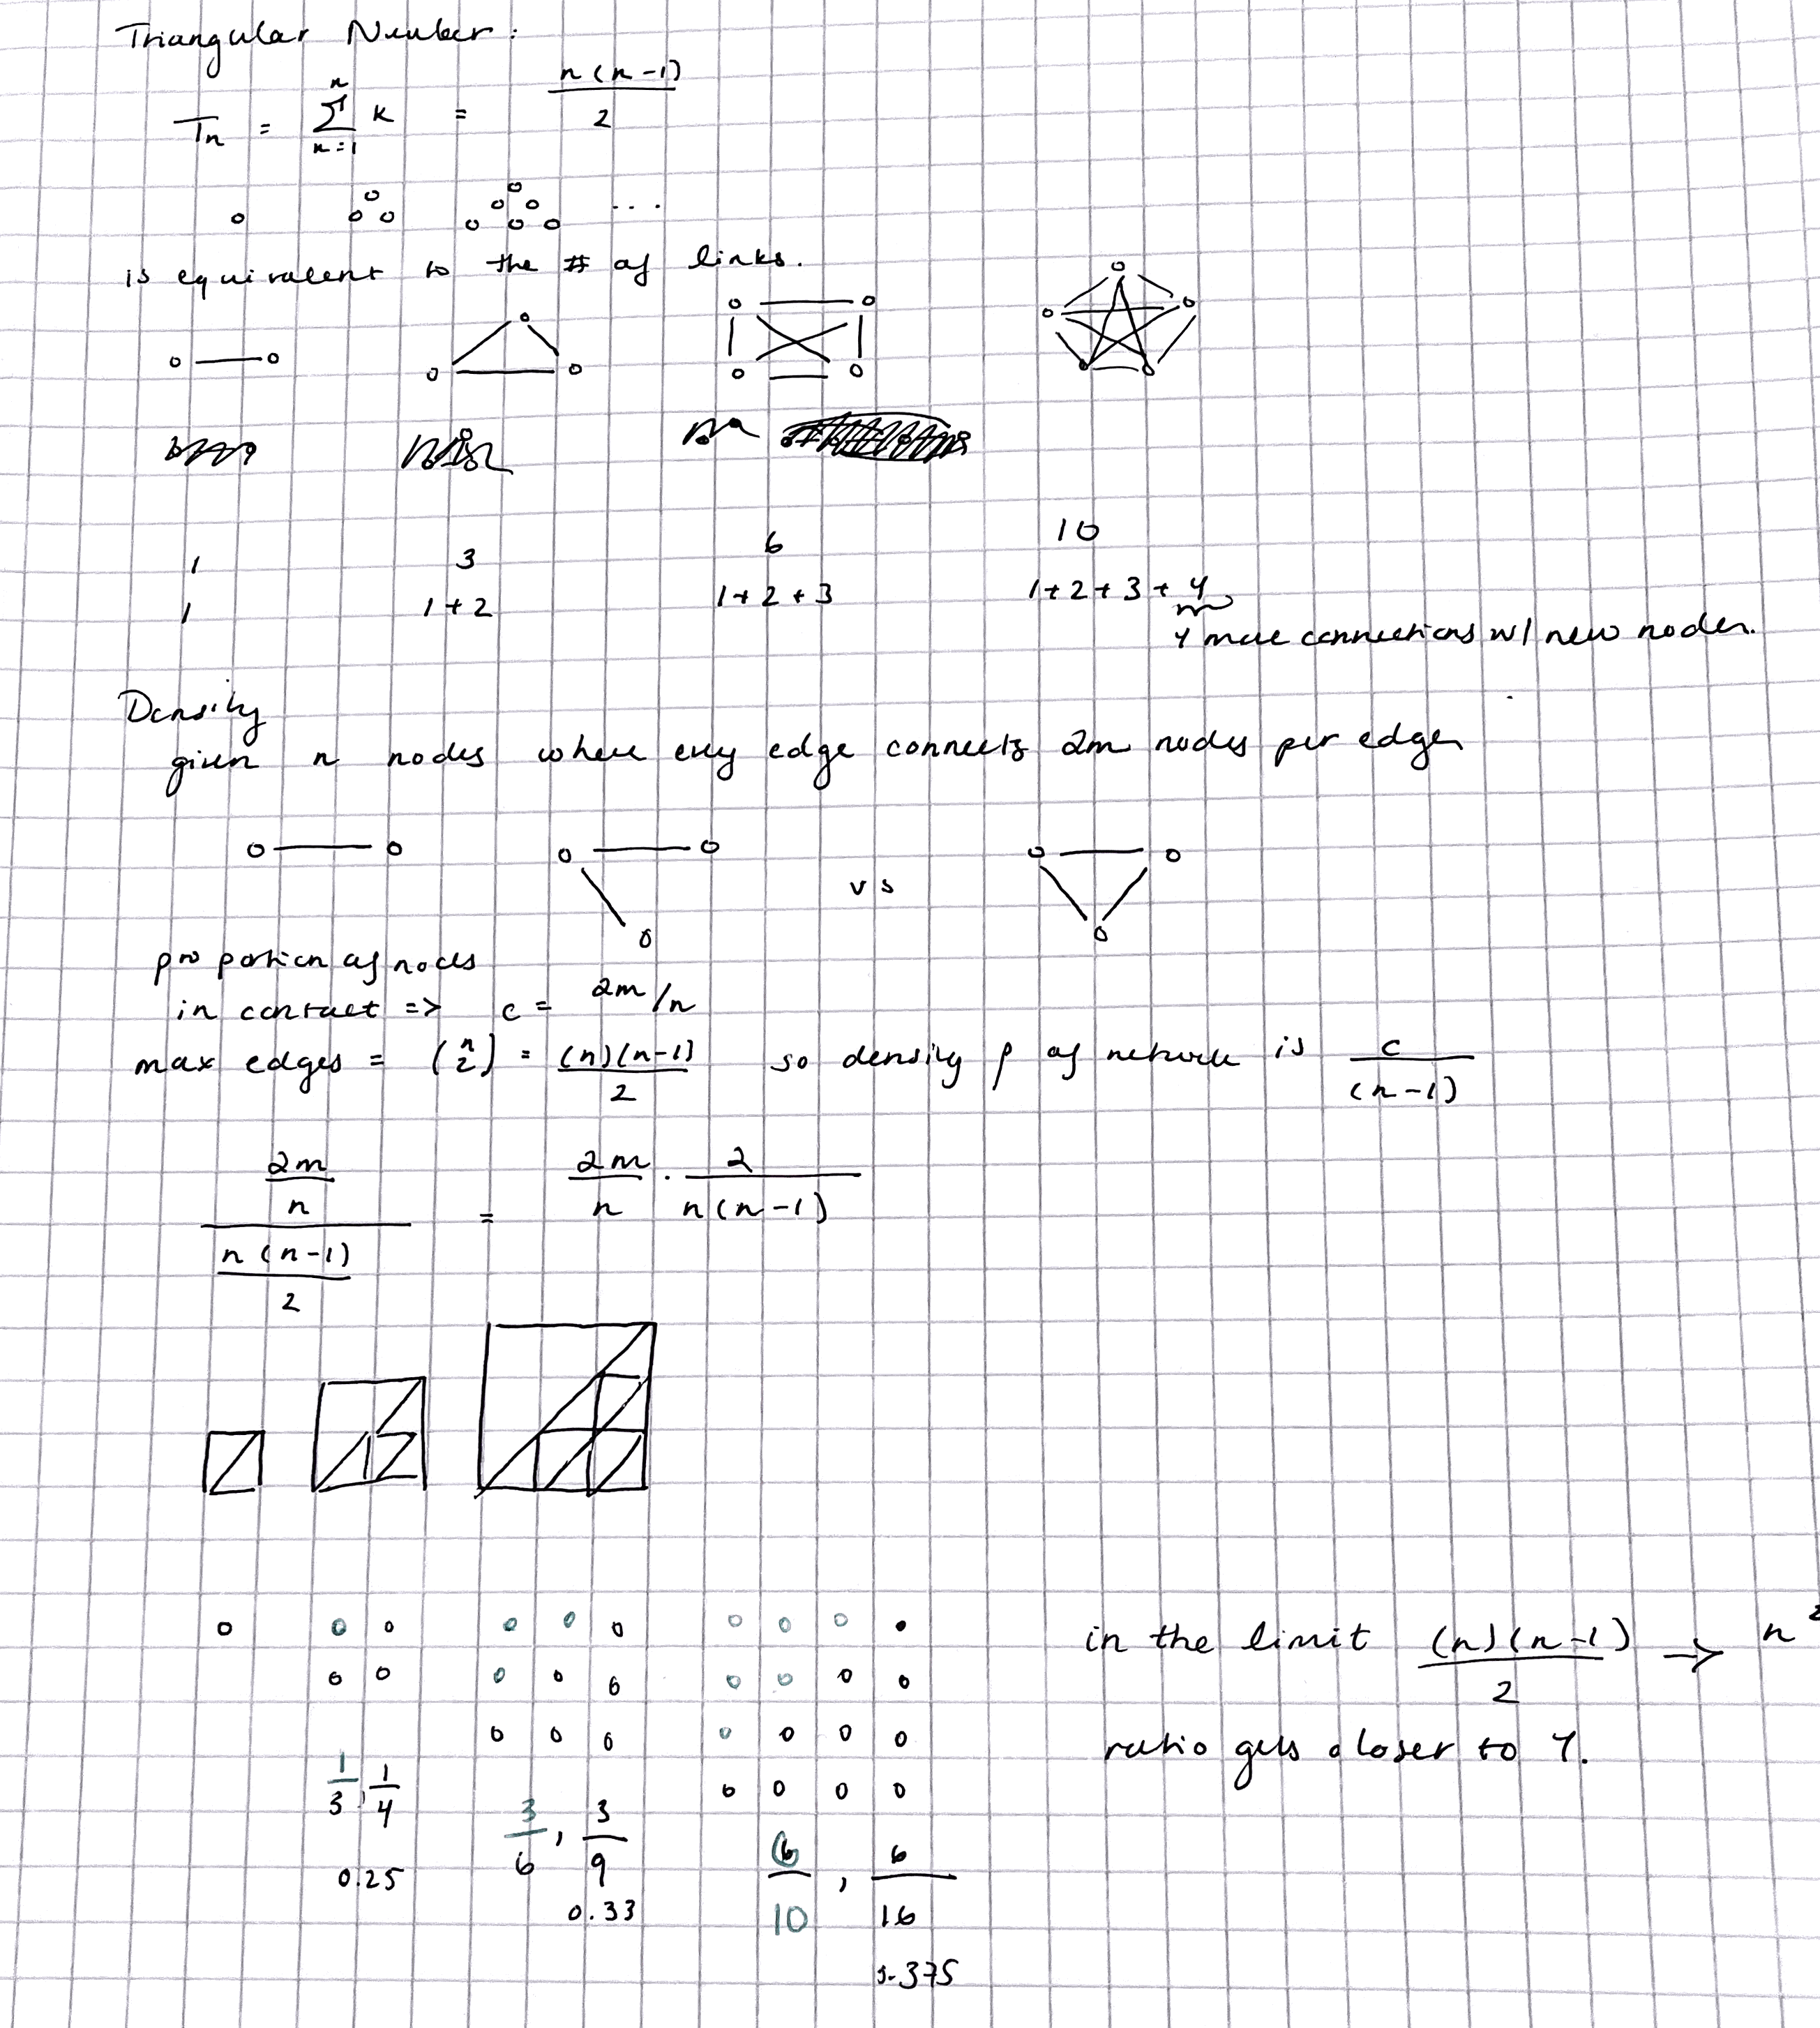 Triangular Number:
Tn = n Σ n=1 k = n(n-1) / 2
...
is equivalent to the # of links.
1 3 6 10
1 1+2 1+2+3 1+2+3+4
4 more connections w/ new nodes.
Density
given n nodes where every edge connects 2m nodes per edge
vs
proportion of nodes
in contact => c = 2m/n
max edges = (n 2) = (n)(n-1) / 2 so density ρ of network is c / (n-1)
2m/n / n(n-1)/2 = 2m/n · 2 / n(n-1)
in the limit (n)(n-1) / 2 → n²
ratio gets closer to 1.
1/3, 1/4
0.25
3/6, 3/9
0.33
6/10, 6/16
0.375